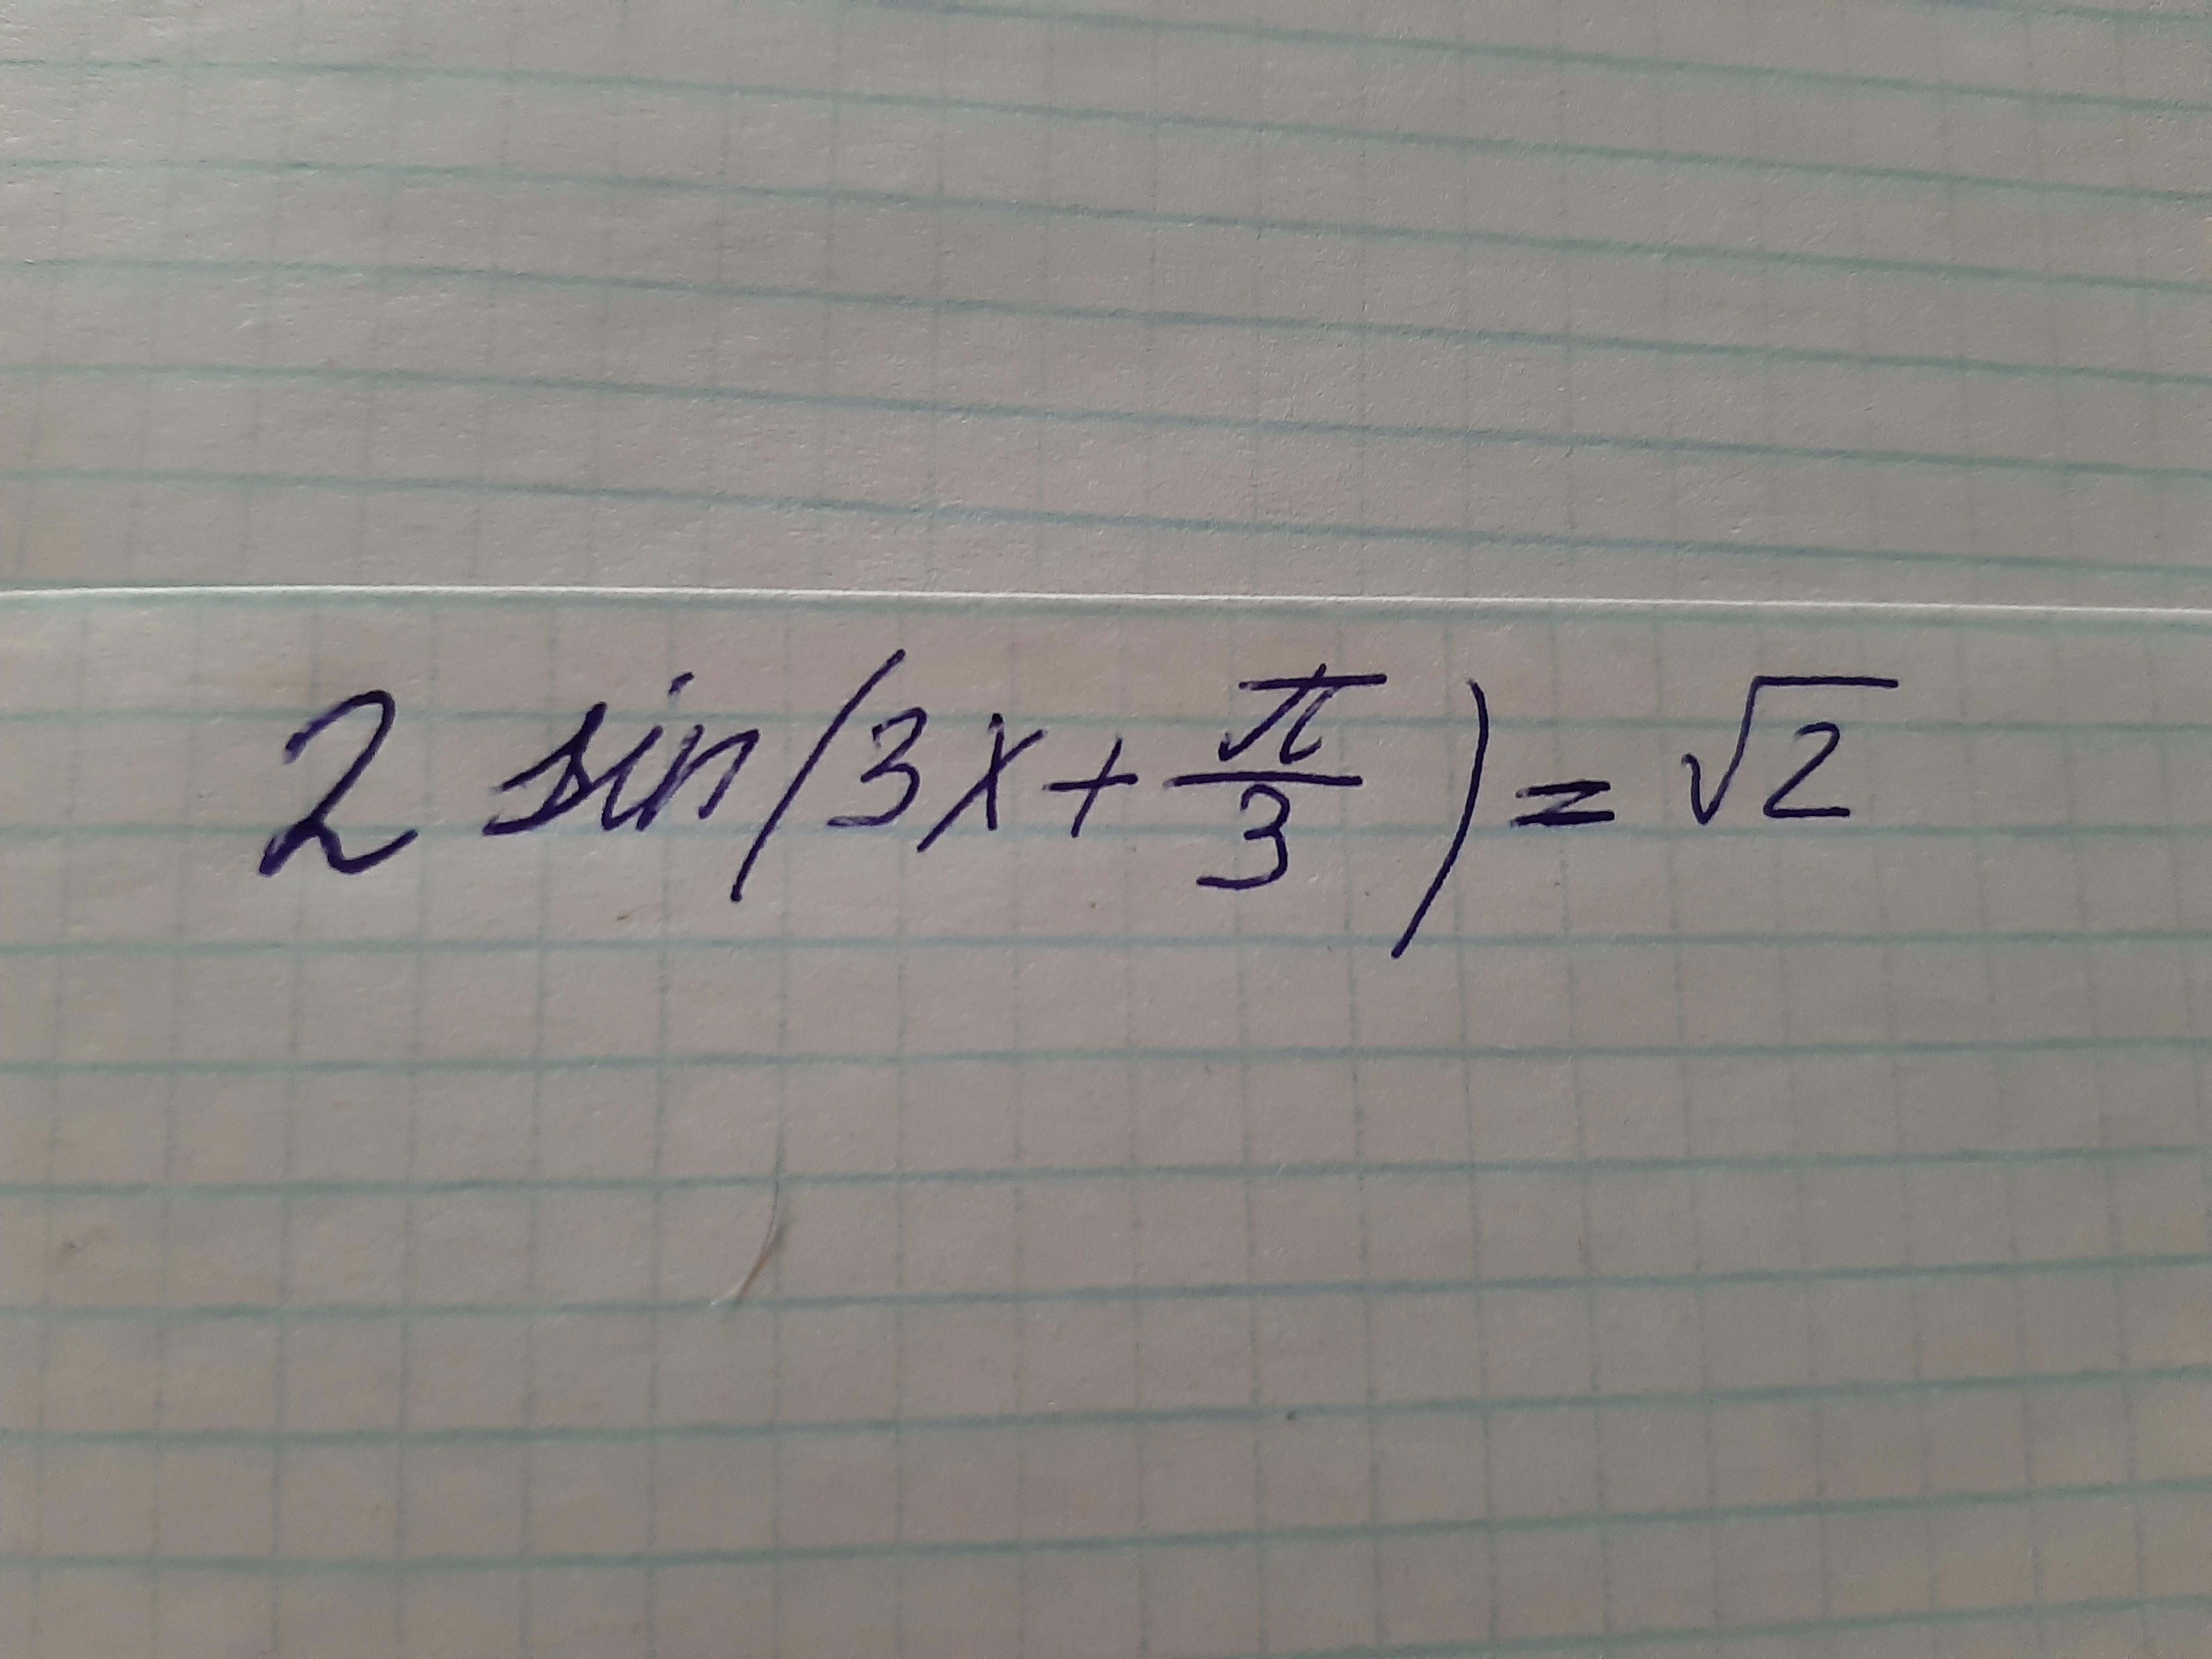 2 sin(3x + π/3) = √2